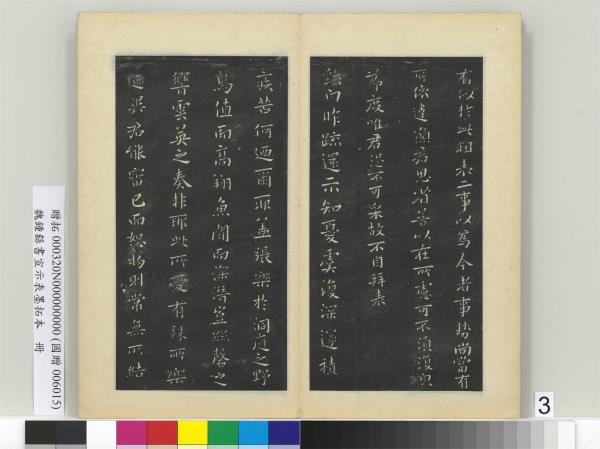 有似於此粗表二事以為今者事勢尚當有
所依違願君思省若以在所慮可不須復皃
節度唯君恐不可采故不自拜表
繇白昨疏還示知憂虞復深遂積
疾苦何迺爾耶蓋張樂於洞庭之野
鳥值而高翔魚聞而深潛豈絲磬之
響雲英之奏非耶此所愛有殊所樂
迺異君能審己而恕物則常無所結
贈拓 000320N000000000 (國贈 006015)
魏鍾繇書宣示表墨拓本 冊
3